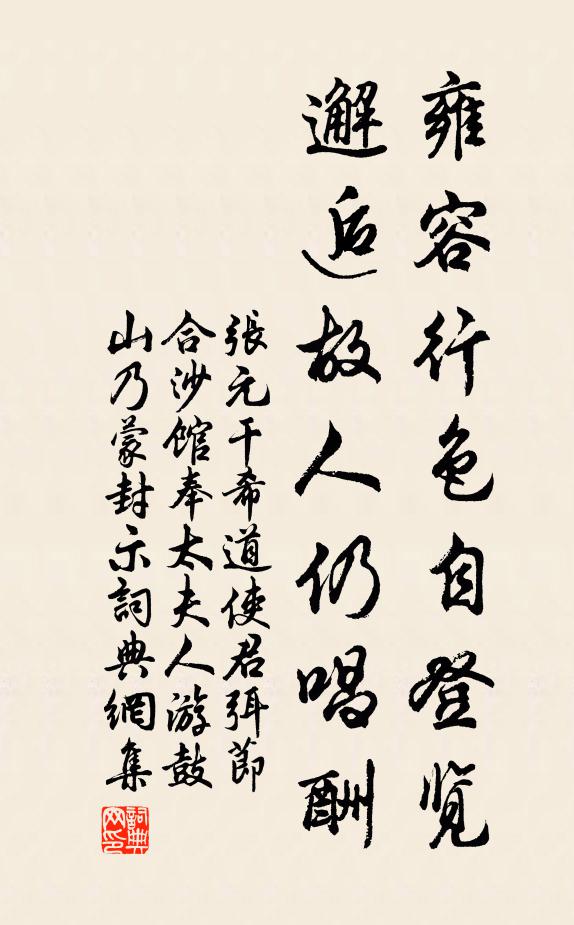 雍容行色自登覽
邂逅故人仍唱酬
張元干希道使君弭節
合沙館奉太夫人游鼓
山乃蒙封示詞典網集
詞典
网印